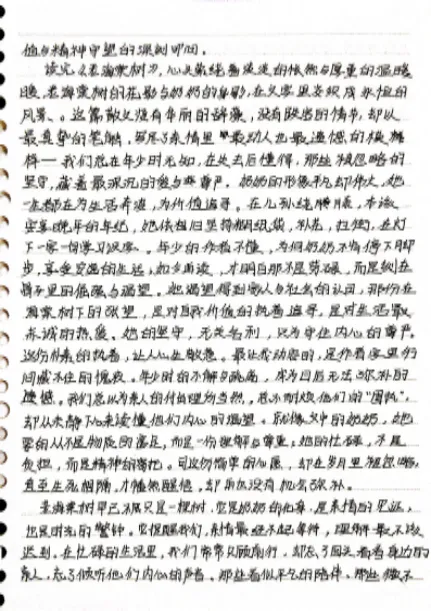 值与精神守望的深刻叩问。
读完《老海棠树》,心头萦绕着淡淡的怅然与厚重的温暖
暖,老海棠树的花影与奶奶的身影,在文字里交织成永恒的
风景。这篇散文没有华丽的辞藻,没有跌宕的情节,却以
最真挚的笔触,写尽了亲情里最动人也最遗憾的模
样——我们总在年少时无知,在失去后懂得,那些被忽略的
坚守,藏着最深沉的爱与尊严。奶奶的形象平凡却伟大,她
一生都在为生活奔波,为价值追寻。在儿孙绕膝,本该
安享晚年的年纪,她依旧坚持糊纸袋,补花,扫街,在灯
下一字一句学习汉字。年少的作者不懂,为何奶奶不肯停下脚
步,享受安逸的生活;如今再读,才明白那不是劳碌,而是刻在
骨子里的倔强与渴望。她渴望得到家人与社会的认同,那份在
海棠树下的张望,是对自我价值的执着追寻,是对生活最
赤诚的热爱。她的坚守,无关名利,只为守住内心的尊严。
这份朴素的执着,让人心生敬意。最让我动容的,是作者字里行
间藏不住的愧疚。年少时的不解与疏离,成为日后无法弥补的
遗憾。我们总以为亲人的付出理所当然,总不耐烦他们的“固执”,
却从未静下心来读懂他们内心的渴望。就像文中的奶奶,她
要的从不是物质的富足,而是一份理解与尊重;她的忙碌,不是
负担,而是精神的寄托。可这份简单的心愿,却在岁月里被忽略,
直至生死相隔,才幡然醒悟,却再也没有机会弥补。
老海棠树早已不只是一棵树,它是奶奶的化身,是亲情的见证,
也是时光的警钟。它提醒我们,亲情最经不起等待,理解最不该
迟到。在忙碌的生活里,我们常常只顾前行,却忘了回头看看身边的
亲人,忘了倾听他们内心的声音。那些看似平凡的陪伴,那些微不